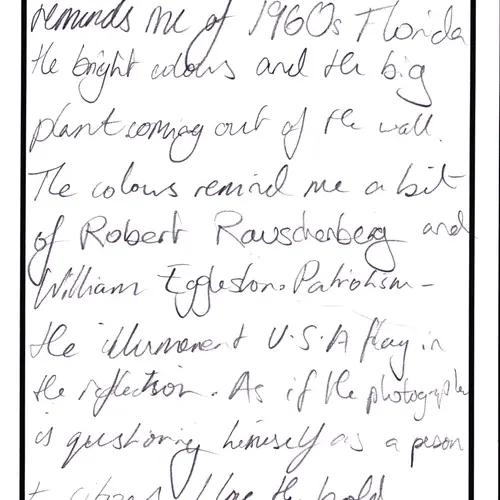 reminds me of 1960s Florida
the bright colours and the big
plant coming out of the wall.
The colours remind me a bit
of Robert Rauschenberg and
William Eggleston. Patriotism -
the U.S.A flag in
the reflection. As if the photographer
is questioning himself as a person
I love the bold